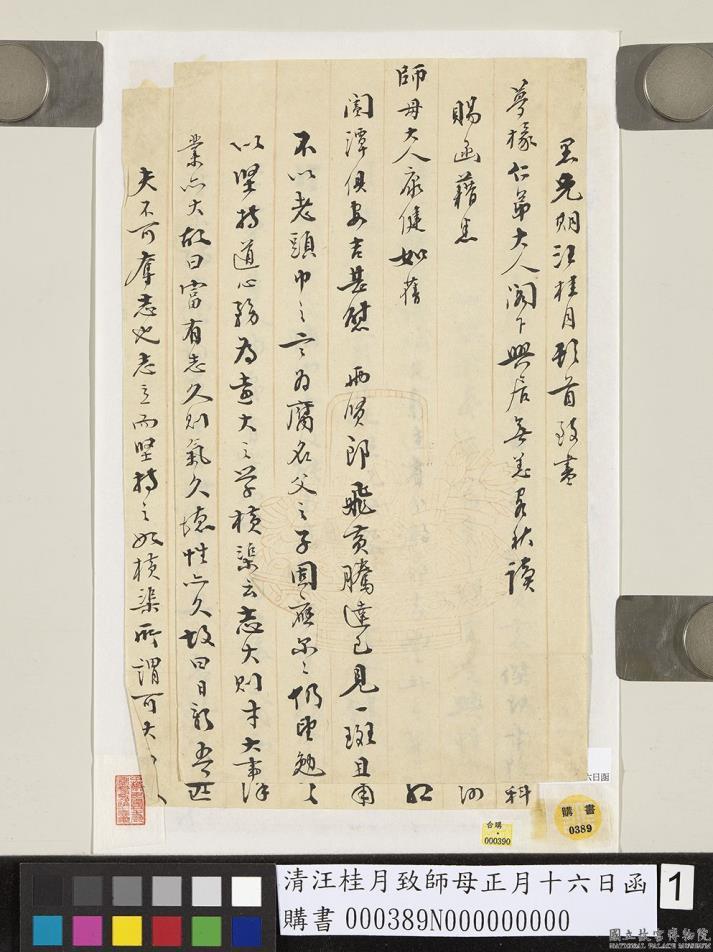 愚兄期汪桂月頓首致書
夢椽仁弟大人閣下興居無恙客秋讀
賜函藉悉
師母大人康健如舊
闔潭俱要吉甚慰兩賢郎飛黃騰達已見一斑且甫
不以老頭巾之言為腐名父之子固應爾爾仍望勉之
以堅持道心務為遠大之學橫渠云志大則才大事
業亦大故曰富有志久則氣久德性亦久故曰日新吾匹
夫不可奪志也志立而堅持之如橫渠所謂可大
科
六日函
購書
0389
合購
000390
清汪桂月致師母正月十六日函
購書 000389N000000000
1
國立故宮博物院
NATIONAL PALACE MUSEUM